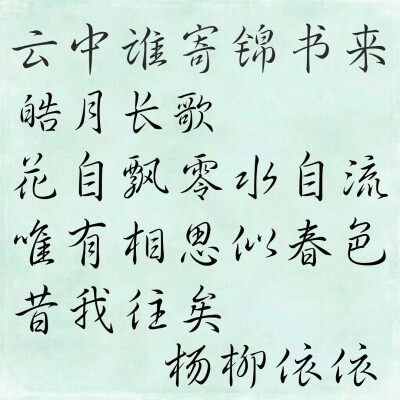 云中谁寄锦书来
皓月长歌
花自飘零水自流
唯有相思似春色
昔我往矣
杨柳依依